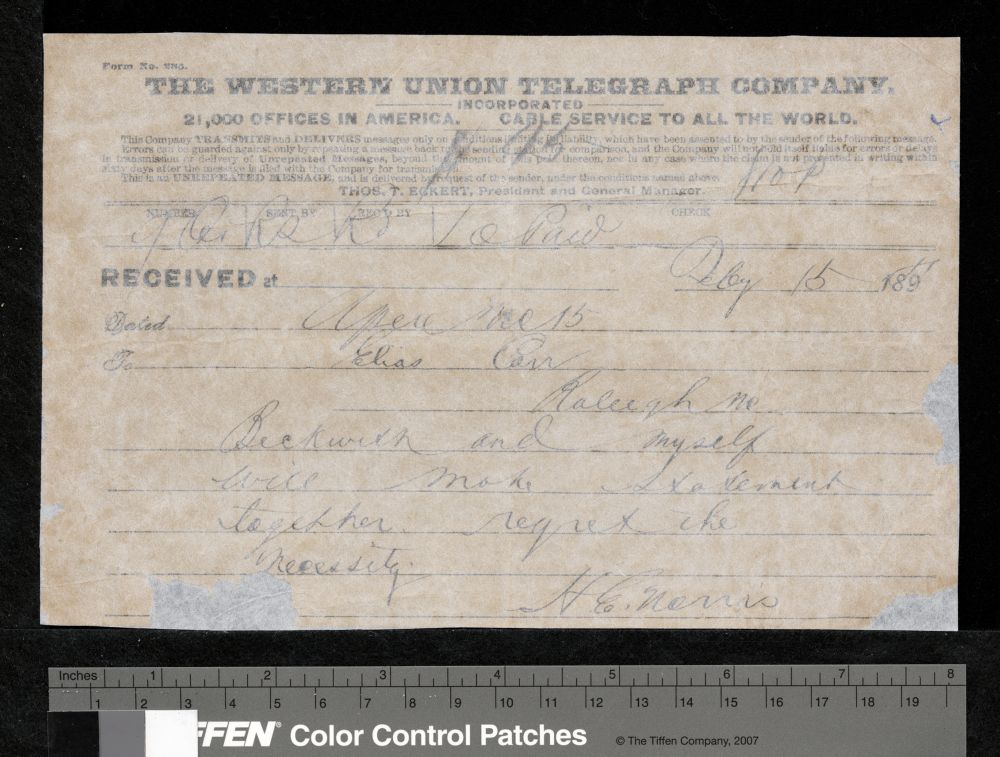 Form No.
THE WESTERN UNION TELEGRAPH COMPANY.
INCORPORATED
21,000 OFFICES IN AMERICA. CABLE SERVICE TO ALL THE WORLD.
This Company TRANSMITS and DELIVERS messages only on conditions limiting its liability, which have been assented to by the sender of the following message.
Errors can be guarded against only by repeating a message back to the sending station for comparison, and the Company will not hold itself liable for errors or delays
in transmission or delivery of Unrepeated Messages, beyond the amount of tolls paid thereon, nor in any case where the claim is not presented in writing within
sixty days after the message is filed with the Company for transmission.
This is an UNREPEATED MESSAGE, and is delivered by request of the sender, under the conditions named above.
THOS. T. ECKERT, President and General Manager.
NUMBER SENT BY REC'D BY CHECK
10 Paid
RECEIVED at 15 189
Dated 15
To Elias Carr
Raleigh NC
Beckwith and myself
will make statement
together. regret the
necessity.
H. E. Norris
Inches 1 2 3 4 5 6 7 8
1 2 3 4 5 6 7 8 9 10 11 12 13 14 15 16 17 18 19
FFEN® Color Control Patches © The Tiffen Company, 2007